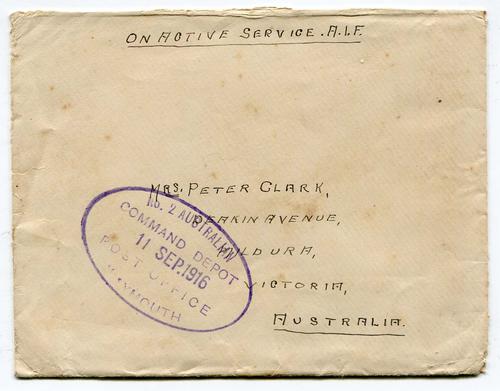 ON ACTIVE SERVICE. A.I.F.
MRS. PETER CLARK,
DEAKIN AVENUE,
MILDURA,
VICTORIA,
AUSTRALIA.
No. 2 AUSTRALIAN
COMMAND DEPOT
11 SEP. 1916
POST OFFICE
WEYMOUTH